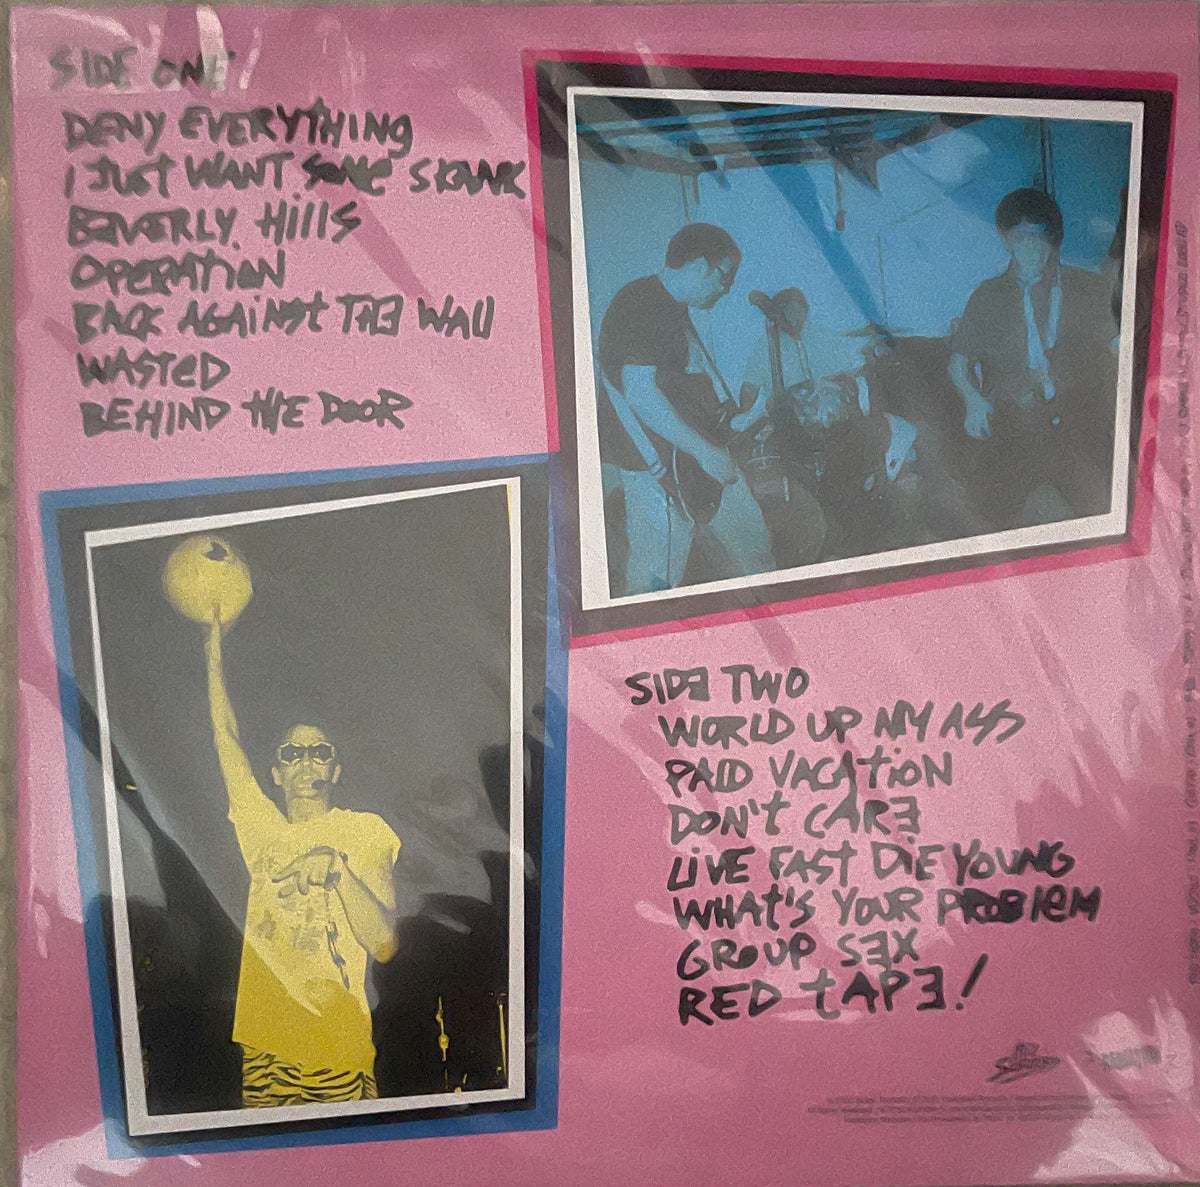 SIDE ONE
DENY EVERYTHING
I JUST WANT SOME SKANK
BEVERLY HILLS
OPERATION
BACK AGAINST THE WALL
WASTED
BEHIND THE DOOR
SIDE TWO
WORLD UP MY ASS
PAID VACATION
DON'T CARE
LIVE FAST DIE YOUNG
WHAT'S YOUR PROBLEM
GROUP SEX
RED TAPE!